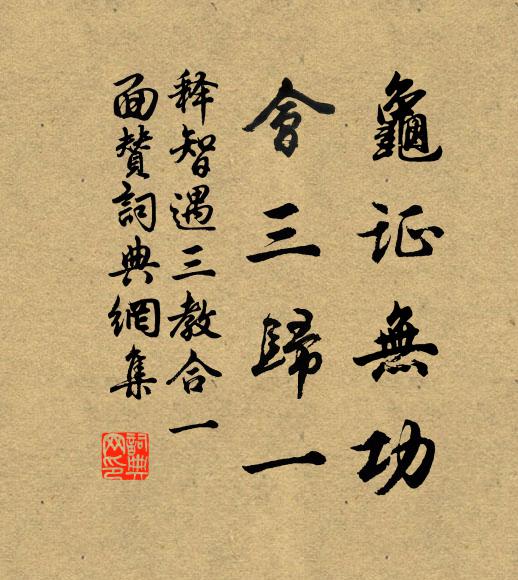 龜证無功
會三歸一
释智遇三教合一
面赞詞典網集
詞典网印